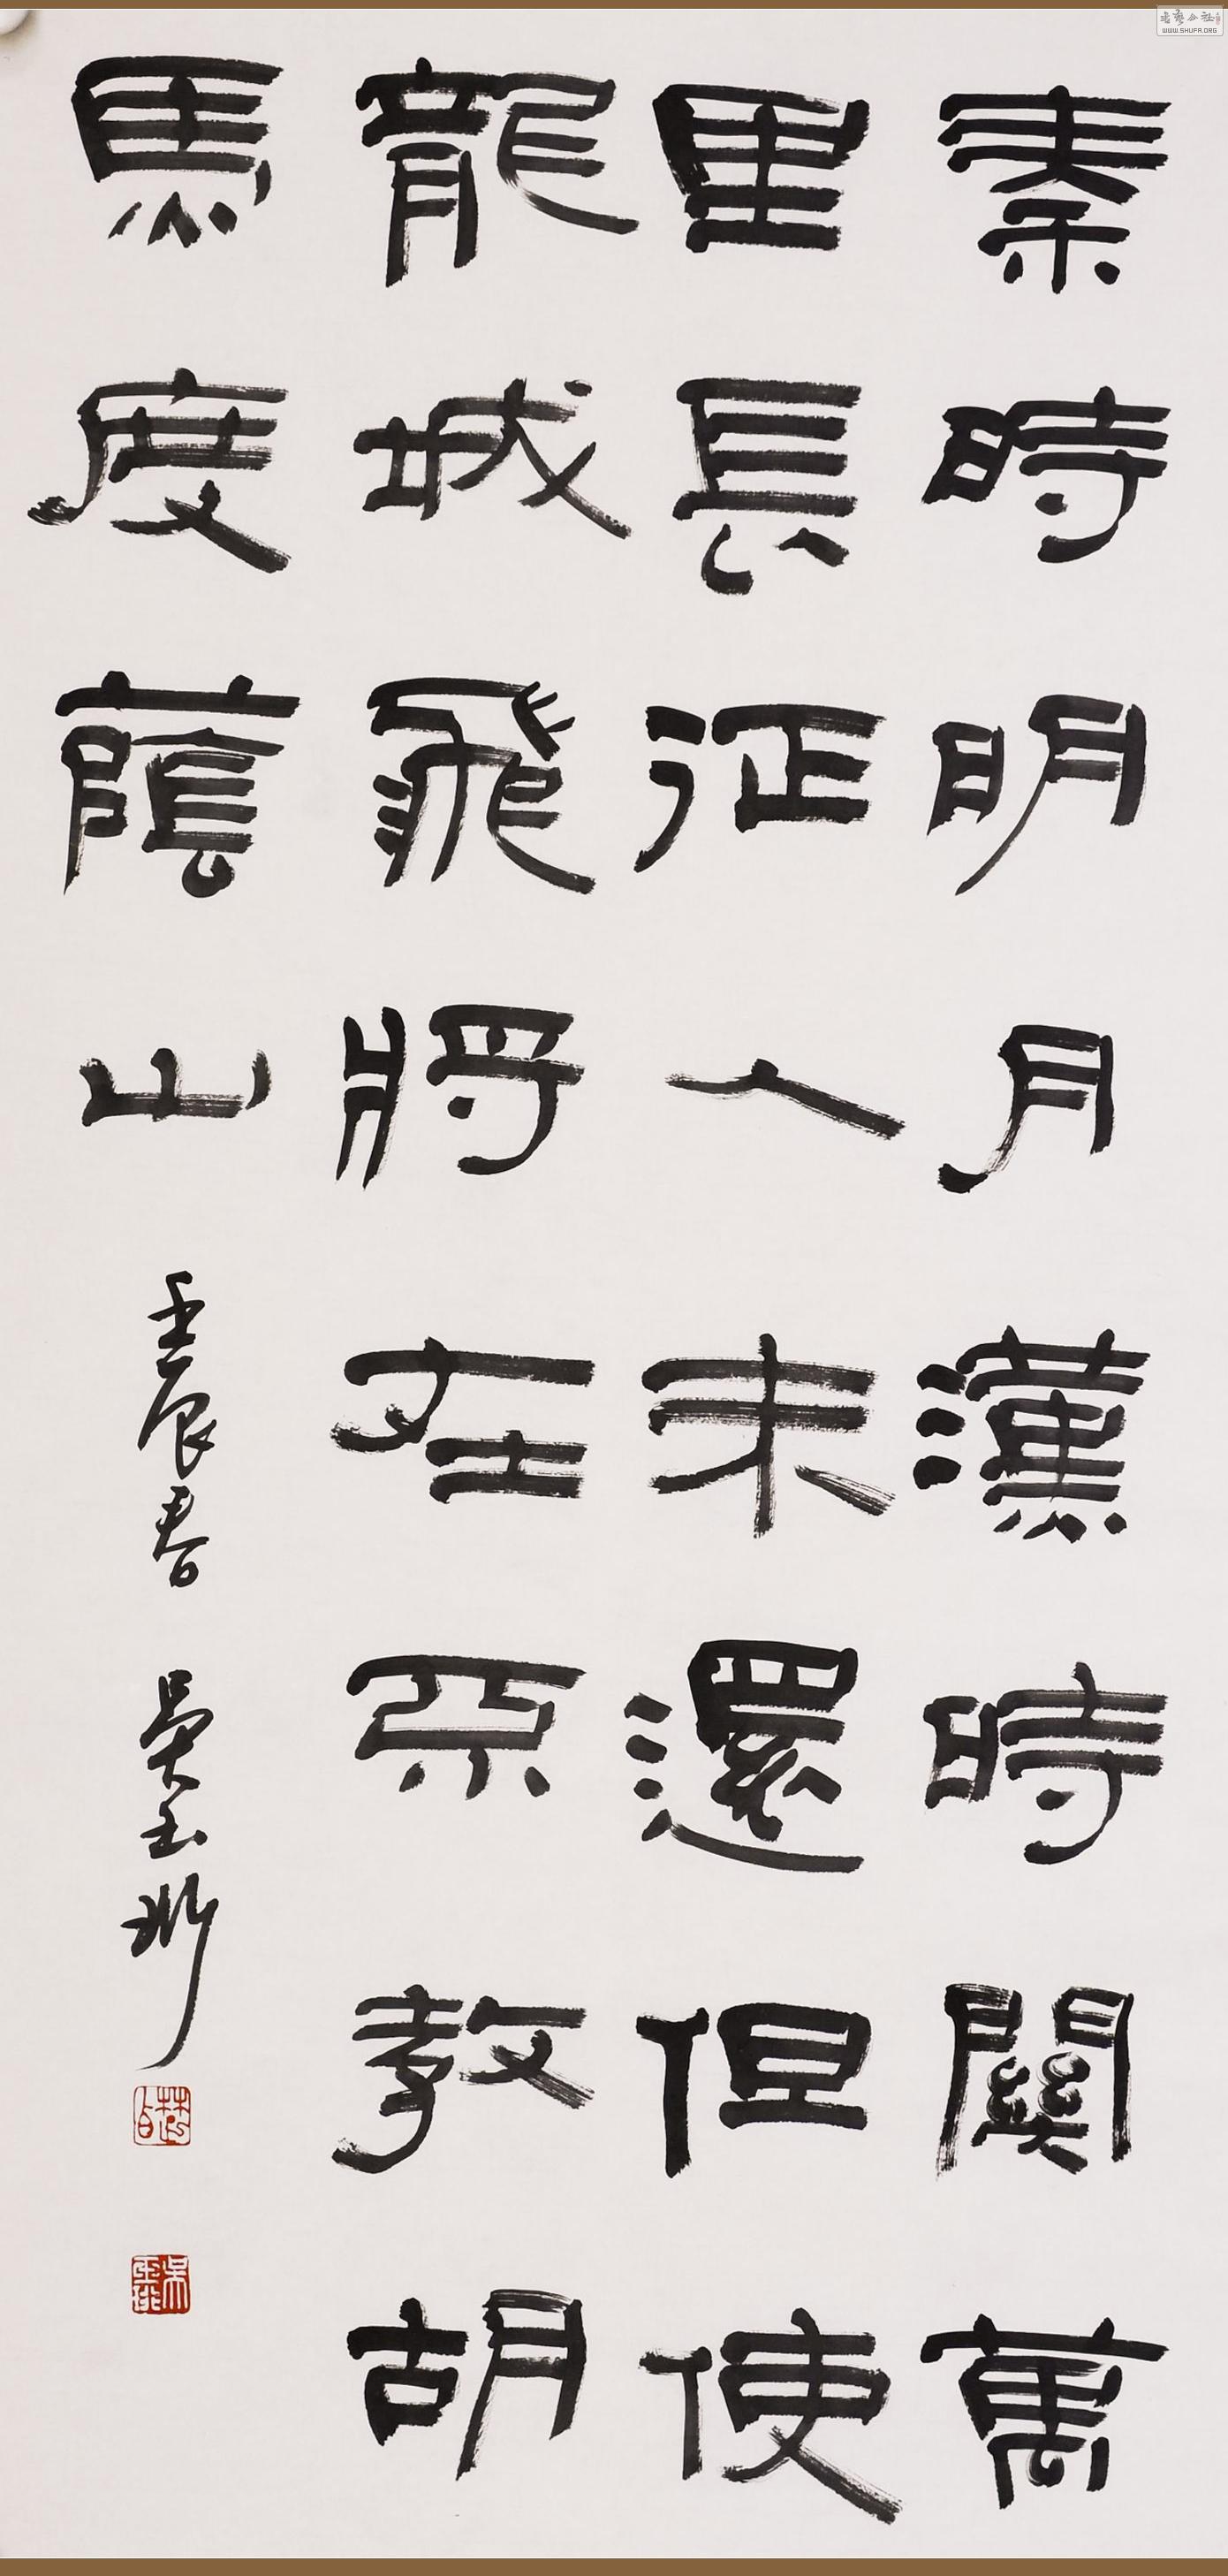 秦時明月漢時關萬
里長征人未還但使
龍城飛將在不教胡
馬度蔭山
壬辰春 吳玉
书艺公社
WWW.SHUFA.ORG